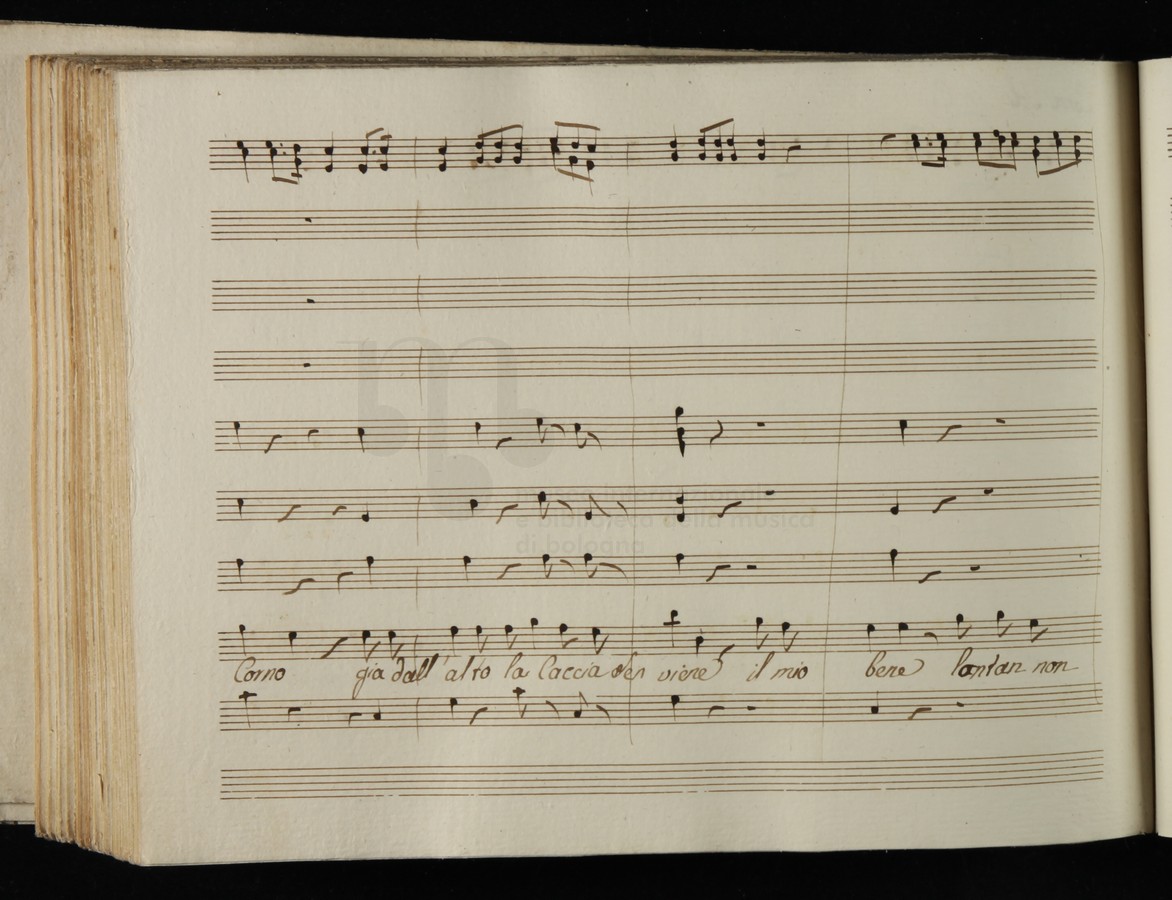 museo internazionale
e biblioteca della musica
di bologna
Corno gia dall' alto la Caccia sen viene il mio bene lontan non